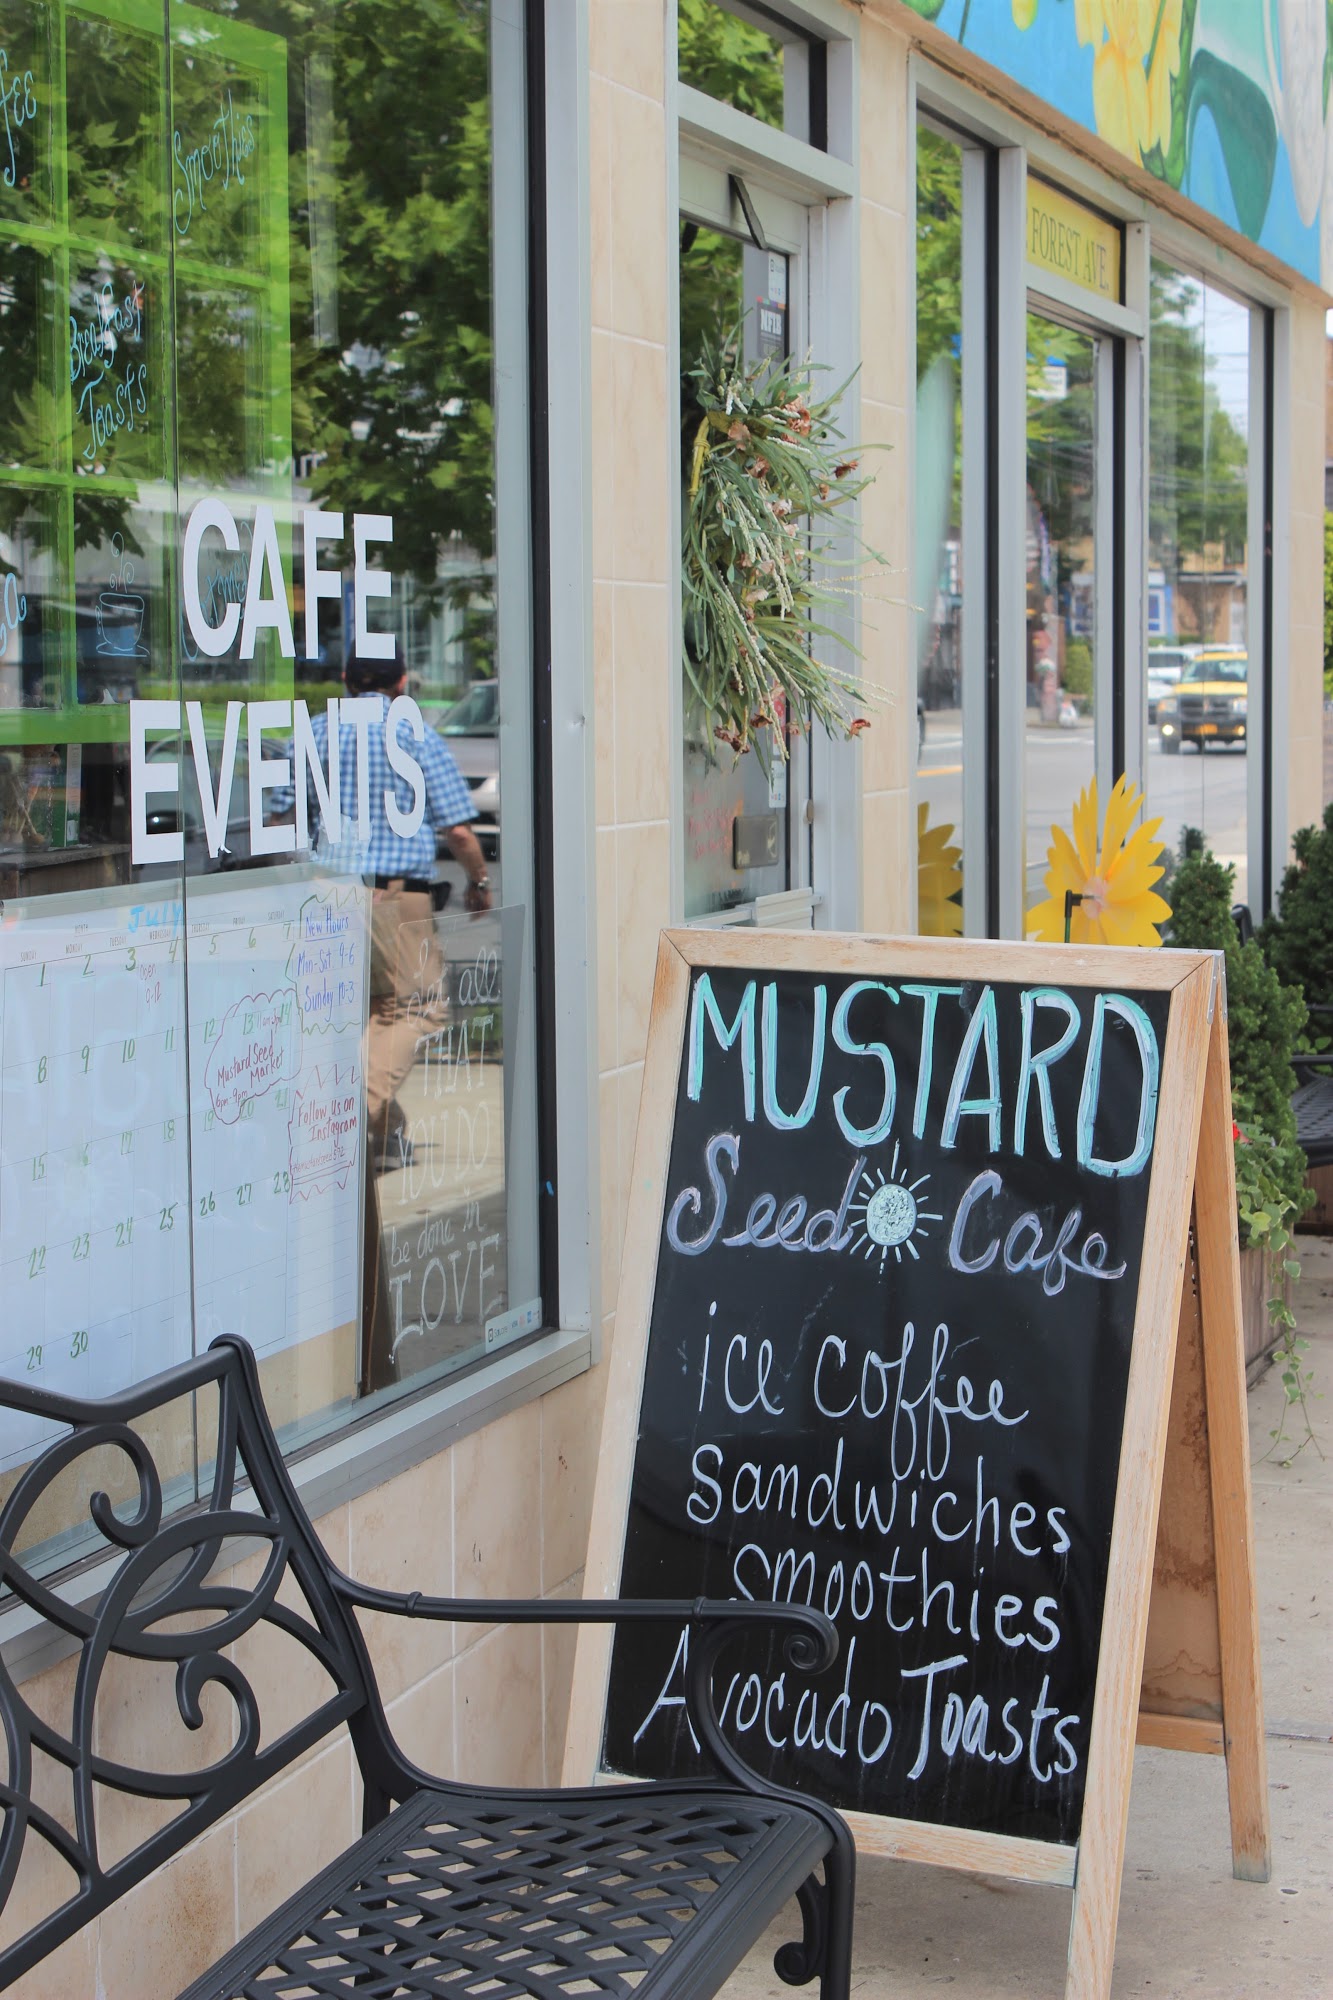 Smoothies
Breakfast
Toasts
CAFE
EVENTS
FOREST AVE.
NFIB
July
SUNDAY MONDAY TUESDAY WEDNESDAY THURSDAY FRIDAY SATURDAY
1 2 3 4 5 6 7
Open
9-12
8 9 10 11 12 13 14
Mustard Seed
Market
6pm-9pm
15 16 17 18 19 20 21
22 23 24 25 26 27 28
29 30
New Hours
Mon-Sat 9-6
Sunday 10-3
Follow us on
Instagram
Let all
THAT
YOU DO
be done in
LOVE
MUSTARD
Seed Cafe
ice coffee
Sandwiches
Smoothies
Avocado Toasts